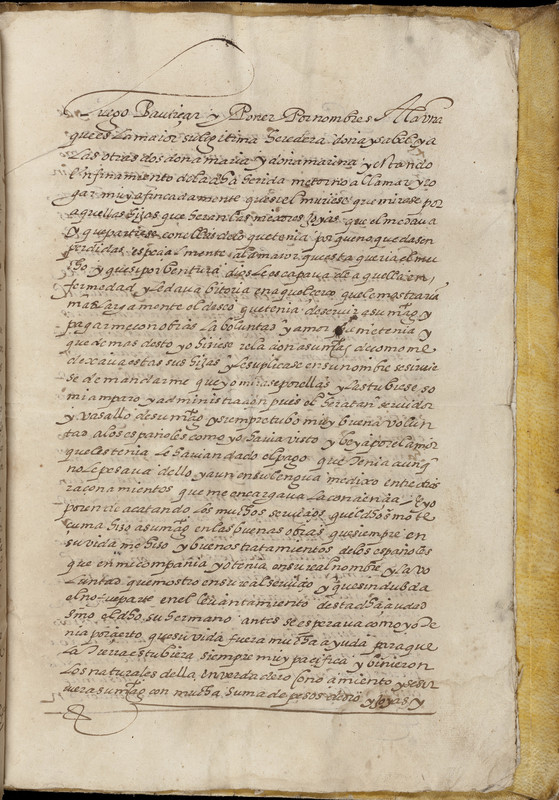 luego Bautiçar y Poner Por nombres A la vna
que es La maior su legitima heredera doña ysabel y a
Las otras dos doña maria y doña marina y estando
en finamiento de la dha herida me torno a llamar y ro
gar muy afincadamente que si el muriese que mirase por
aquellas hijas que heran las mexores joyas que el me dava
y que partiese con ellas de lo que tenia por que no quedasen
perdidas especialmente a la maior que esta queria el mu
cho y que si por bentura dios le escapava de aquella en
fermedad y le dava bitoria en aquel cerco que el mostraria
mas Largamente el deseo que tenia de servir a su magd y
pagarme con obras La boluntad y amor que me tenia y
que demas desto yo hiziese rela con a su magd de como me
dexava estas sus hijas y le suplicase en su nombre se sirvie
se de mandarme que yo mirase por ellas y Las tubiese so
mi amparo y administracion pues el hera tan servidor
y vasallo de su magd y siempre tubo muy buena volun
tad a los españoles como yo havia visto y beya por el amor
que les tenia le havian dado el pago que tenia aunq
no le pesava dello y aun en su lengua me dixo entre estos
raconamientos que me encargava La conciencia E yo
por ende acatando Los muchos servicios quel dho mote
cuma hizo a su magd en las buenas obras que siempre en
su vida me hizo y buenos tratamientos de los españoles
que en mi compañia yo tenia en su real nombre y La vo
Luntad que mostro en su real servicio y que sin dubda
el no fue parte en el levantamiento desta dha ciudad
sino el dho su hermano antes se esperava como yo te
nia por cierto que su vida fuera mucha ayuda para que
La tierra estubiera siempre muy pacifica y vinieran
Los naturales della en verdadero conocimiento y se sir
viera su magd con mucha suma de pesos de oro y joyas y